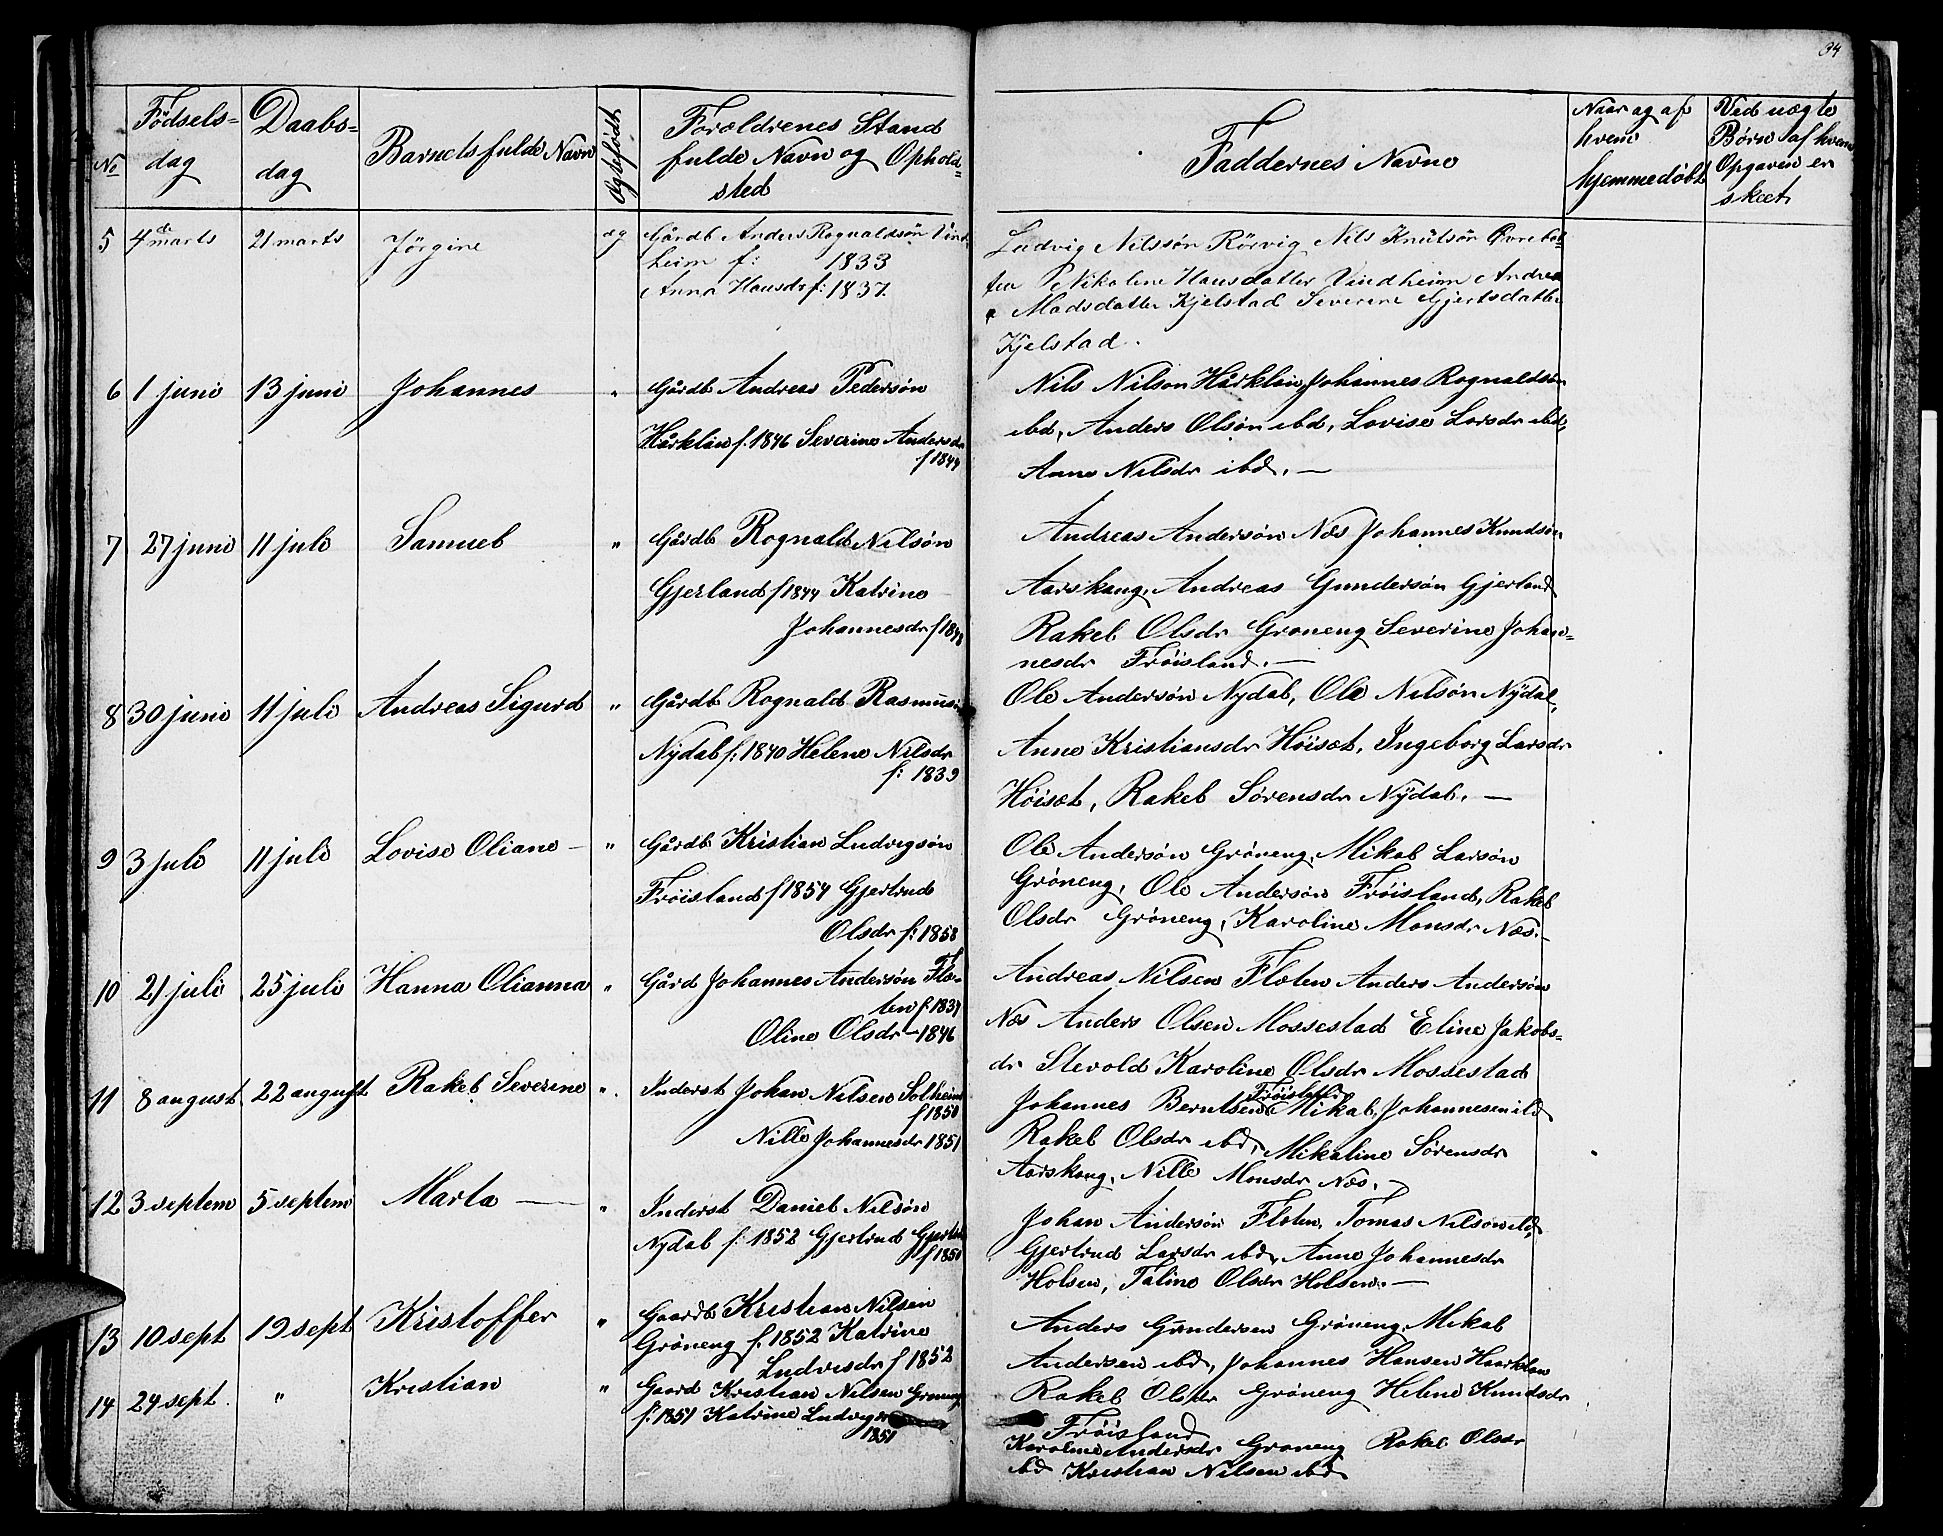 34
No
Födsels-
dag
Daabs-
dag
Barnets fulde Navn
Ægtefødt
Forældrenes Stand
fulde Navn og Ophold-
sted
Faddernes Navne
Naar og af
hvem
hjemmedöbt
Ved uægte
Børn af hvem
Opgaven er
skeet
5 4de marts 21 marts Jörgine æg Gårdb Anders Rognaldsön Vind-
heim f: 1833
Anna Hansdr f: 1837.
Ludvig Nilssön Rörvig Nils Knutsön Øvrebot-
ten Nikoline Hansdatter Vindheim Andrea
Madsdatter Kjelstad Severine Gjertsdatter
Kjelstad.
6 1 juni 13 juni Johannes " Gårdb Andreas Pedersön
Hårklau f. 1846 Severine Andersdr
f 1844
Nils Nilson Hårklau, Johannes Rognaldsön
ibd, Anders Olsön ibd, Lovise Larsdr ibd,
Anne Nilsdr ibd. —
7 27 juni 11 juli Samuel " Gårdb Rognald Nilsön
Gjerland f 1844 Katrine
Johannesdr f 1848
Andreas Andersön Næs Johannes Knudsön
Aarskaug, Andreas Gundersön Gjerland
Rakel Olsdr Gröneng Severine Johan-
nesdr Fröisland. —
8 30 juni 11 juli Andreas Sigurd " Gårdb Rognald Rasmusön
Nydal f: 1840 Helene Nilsdr
f: 1839
Ole Andersön Nydal, Ole Nilsön Nydal,
Anne Kristiansdr Höisæt, Ingeborg Larsdr
Höisæt, Rakel Sörensdr Nydal. —
9 3 juli 11 juli Lovise Oliane — " Gårdb Kristian Ludvigsön
Fröisland f 1854 Gjertrud
Olsdr f: 1858
Ole Andersön Gröneng, Mikal Larsön
Gröneng, Ole Andersön Fröisland, Rakel
Olsdr Gröneng, Karoline Monsdr Næs. —
10 21 juli 25 juli Hanna Olianna " Gård Johannes Andersön Flæ-
ten f. 1837
Oline Olsdr — 1846
Andreas Nilsen Flæten Anders Andersön
Næs Anders Olsen Mossestad Eline Jakobs-
dr Stevold Karoline Olsdr Mossestad
11 8 august 22 august Rakel Severine " Inderst Johan Nilsen Solheim
f 1850
Nille Johannesdr 1851
Johannes Berntsen Fröisland Mikal Johannesen ibd
Rakel Olsdr ibd, Mikaline Sörensdr
Aarskaug, Nille Monsdr Næs. —
12 3 septem 5 septem Marta — " Inderst Daniel Nilsön
Nydal f: 1852 Gjertrud Gjertsd
f 1850
Johan Andersön Flæten, Tomas Nilsön ibd,
Gjertrud Larsdr ibd, Anne Johannesdr
Holsen, Taline Olsdr Holsen. —
13 10 sept 19 sept Kristoffer " Gaardb Kristian Nilsen
Gröneng f. 1852 Katrine
Ludvisdr f 1852
Anders Gundersen Gröneng, Mikal
Andersen ibd, Johannes Hansen Haarklau
Rakel Olsdr Gröneng Helene Knudsdr
Fröisland
14 24 sept. " Kristian " Gaard Kristian Nilsen Gröneng
f: 1851 Katrine Ludvigsdr
1851
Karoline Andersdr Gröneng Rakel Olsdr
ibd Kristian Nilsen ibd